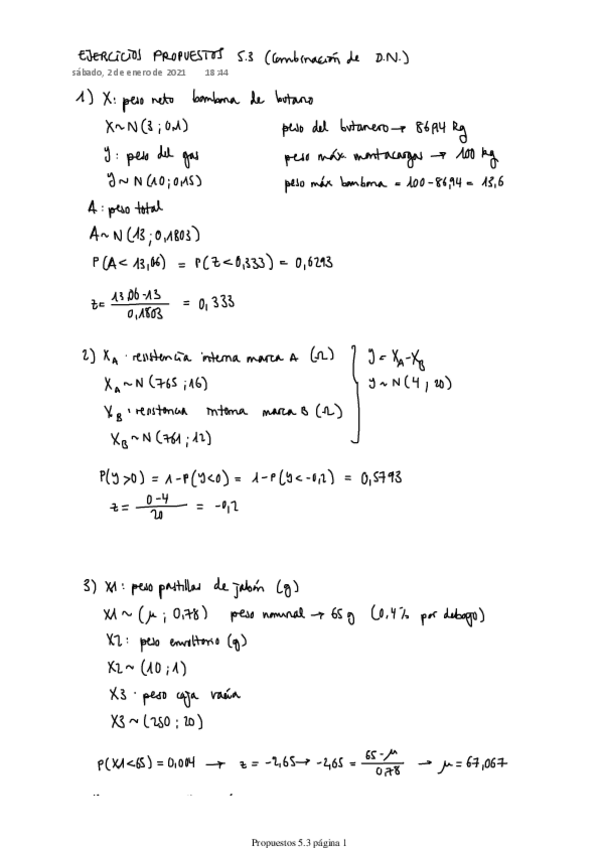 EJERCICIOS PROPUESTOS 5.3 (Combinación de D.N.)
sábado, 2 de enero de 2021 18:44
1) X: peso neto bombona de butano
X~N(3;0,1) peso del butanero → 86,94 Kg
Y: peso del gas peso máx montacargas → 100 kg
Y~N(10;0,15) peso máx bombona = 100-86,94 = 13,6
A: peso total
A~N(13;0,1803)
P(A<13,06) = P(Z<0,333) = 0,6293
z= 13,06-13 / 0,1803 = 0,333
2) XA: resistencia interna marca A (Ω) Y = XA-XB
XA~N(765;16) Y~N(4;20)
XB: resistencia interna marca B (Ω)
XB~N(761;12)
P(Y>0) = 1-P(Y<0) = 1-P(Y<-0,2) = 0,5793
z = 0-4 / 20 = -0,2
3) X1: peso pastillas de jabón (g)
X1~(μ; 0,78) peso nominal → 65 g (0,4% por debajo)
X2: peso envoltorio (g)
X2~(10;1)
X3: peso caja vacía
X3~(250;20)
P(X1<65)=0,004 → z = -2,65 → -2,65 = 65-μ / 0,78 → μ=67,067
Propuestos 5.3 página 1